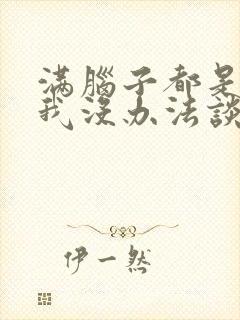 滿腦子都是
我沒办法談
伊一然